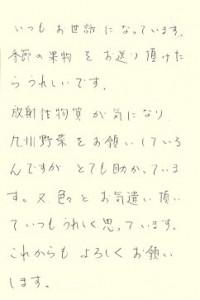 いつもお世話になっています。
季節の果物をお送り頂けた
らうれしいです。
放射性物質が気になり
九州野菜をお願いしている
んですがとても助かっていま
す。又色々とお気遣い頂い
ていつもうれしく思っています。
これからもよろしくお願い
します。